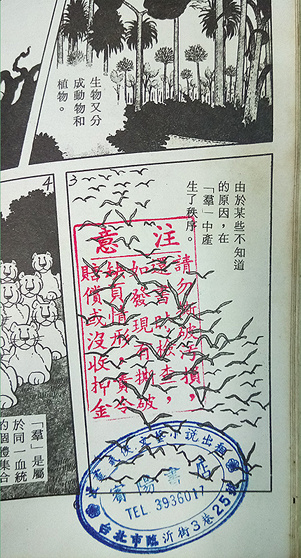 生物又分
成動物和
植物。
3
由於某些不知道
的原因，在
「羣」中產
生了秩序。
注意
請勿撕破污損，
還書時檢查，
如發現有撕破
缺頁情形，責令
賠償或沒收押金
4
「羣」是屬
於同一血統
的個體集合
武俠文藝小說出租
書店
TEL 3936017
台北市臨沂街3巷25號